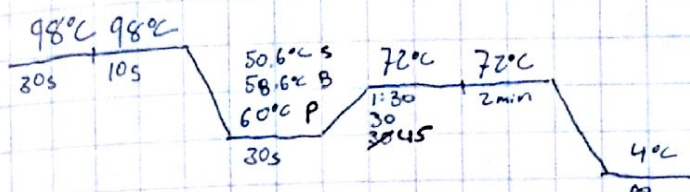 98°C 98°C
30s 10s
50.6°C S
58.6°C B
60°C P
30s
72°C 72°C
1:30 2min
30
3045
4°C
∞